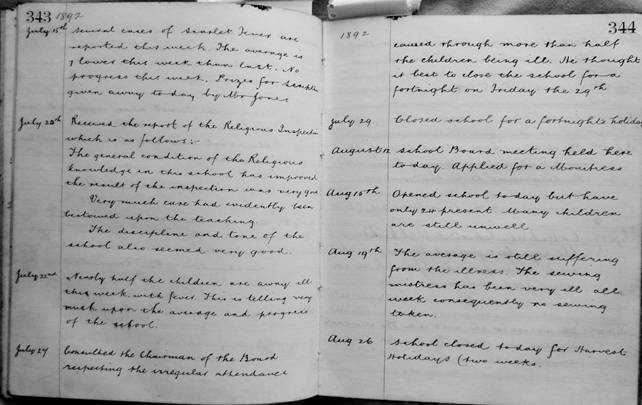 343 1892
July 15th several cases of Scarlet Fever are
reported this week. The average is
7 lower this week than last. No
progress this week. Prizes for
given away today by Mr Jones
July 20th Received the report of the Religious Inspection
which is as follows:-
The general condition of the Religious
knowledge in this school has improved
the result of the inspection was very good
Very much care had evidently been
bestowed upon the teaching.
The discipline and tone of the
school also seemed very good.
July 22nd Nearly half the children are away ill
this week with fever. This is telling very
much upon the average and progress
of the school.
July 27 Consulted the Chairman of the Board
respecting the irregular attendance
1892 344
caused through more than half
the children being ill. He thought
it best to close the school for a
fortnight on Friday the 29th
July 29 Closed school for a fortnights holiday
August 12 School Board meeting held here
today. Applied for a Monitress
Aug 15th Opened school today but have
only 24 present. Many children
are still unwell
Aug 19th The average is still suffering
from the illness. The sewing
mistress has been very ill all
week consequently no sewing
taken.
Aug 26 School closed today for Harvest
Holidays (two weeks.